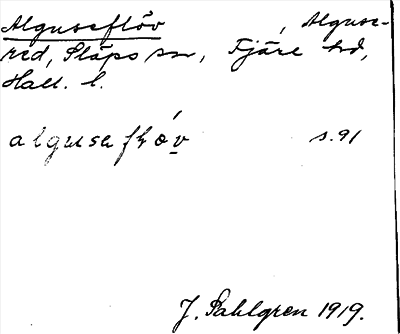 Alguseflöv, Alguse-
red, Släps sn, Fjäre hd,
Hall. l.
algusaflöv s.91
J. Sahlgren 1919.